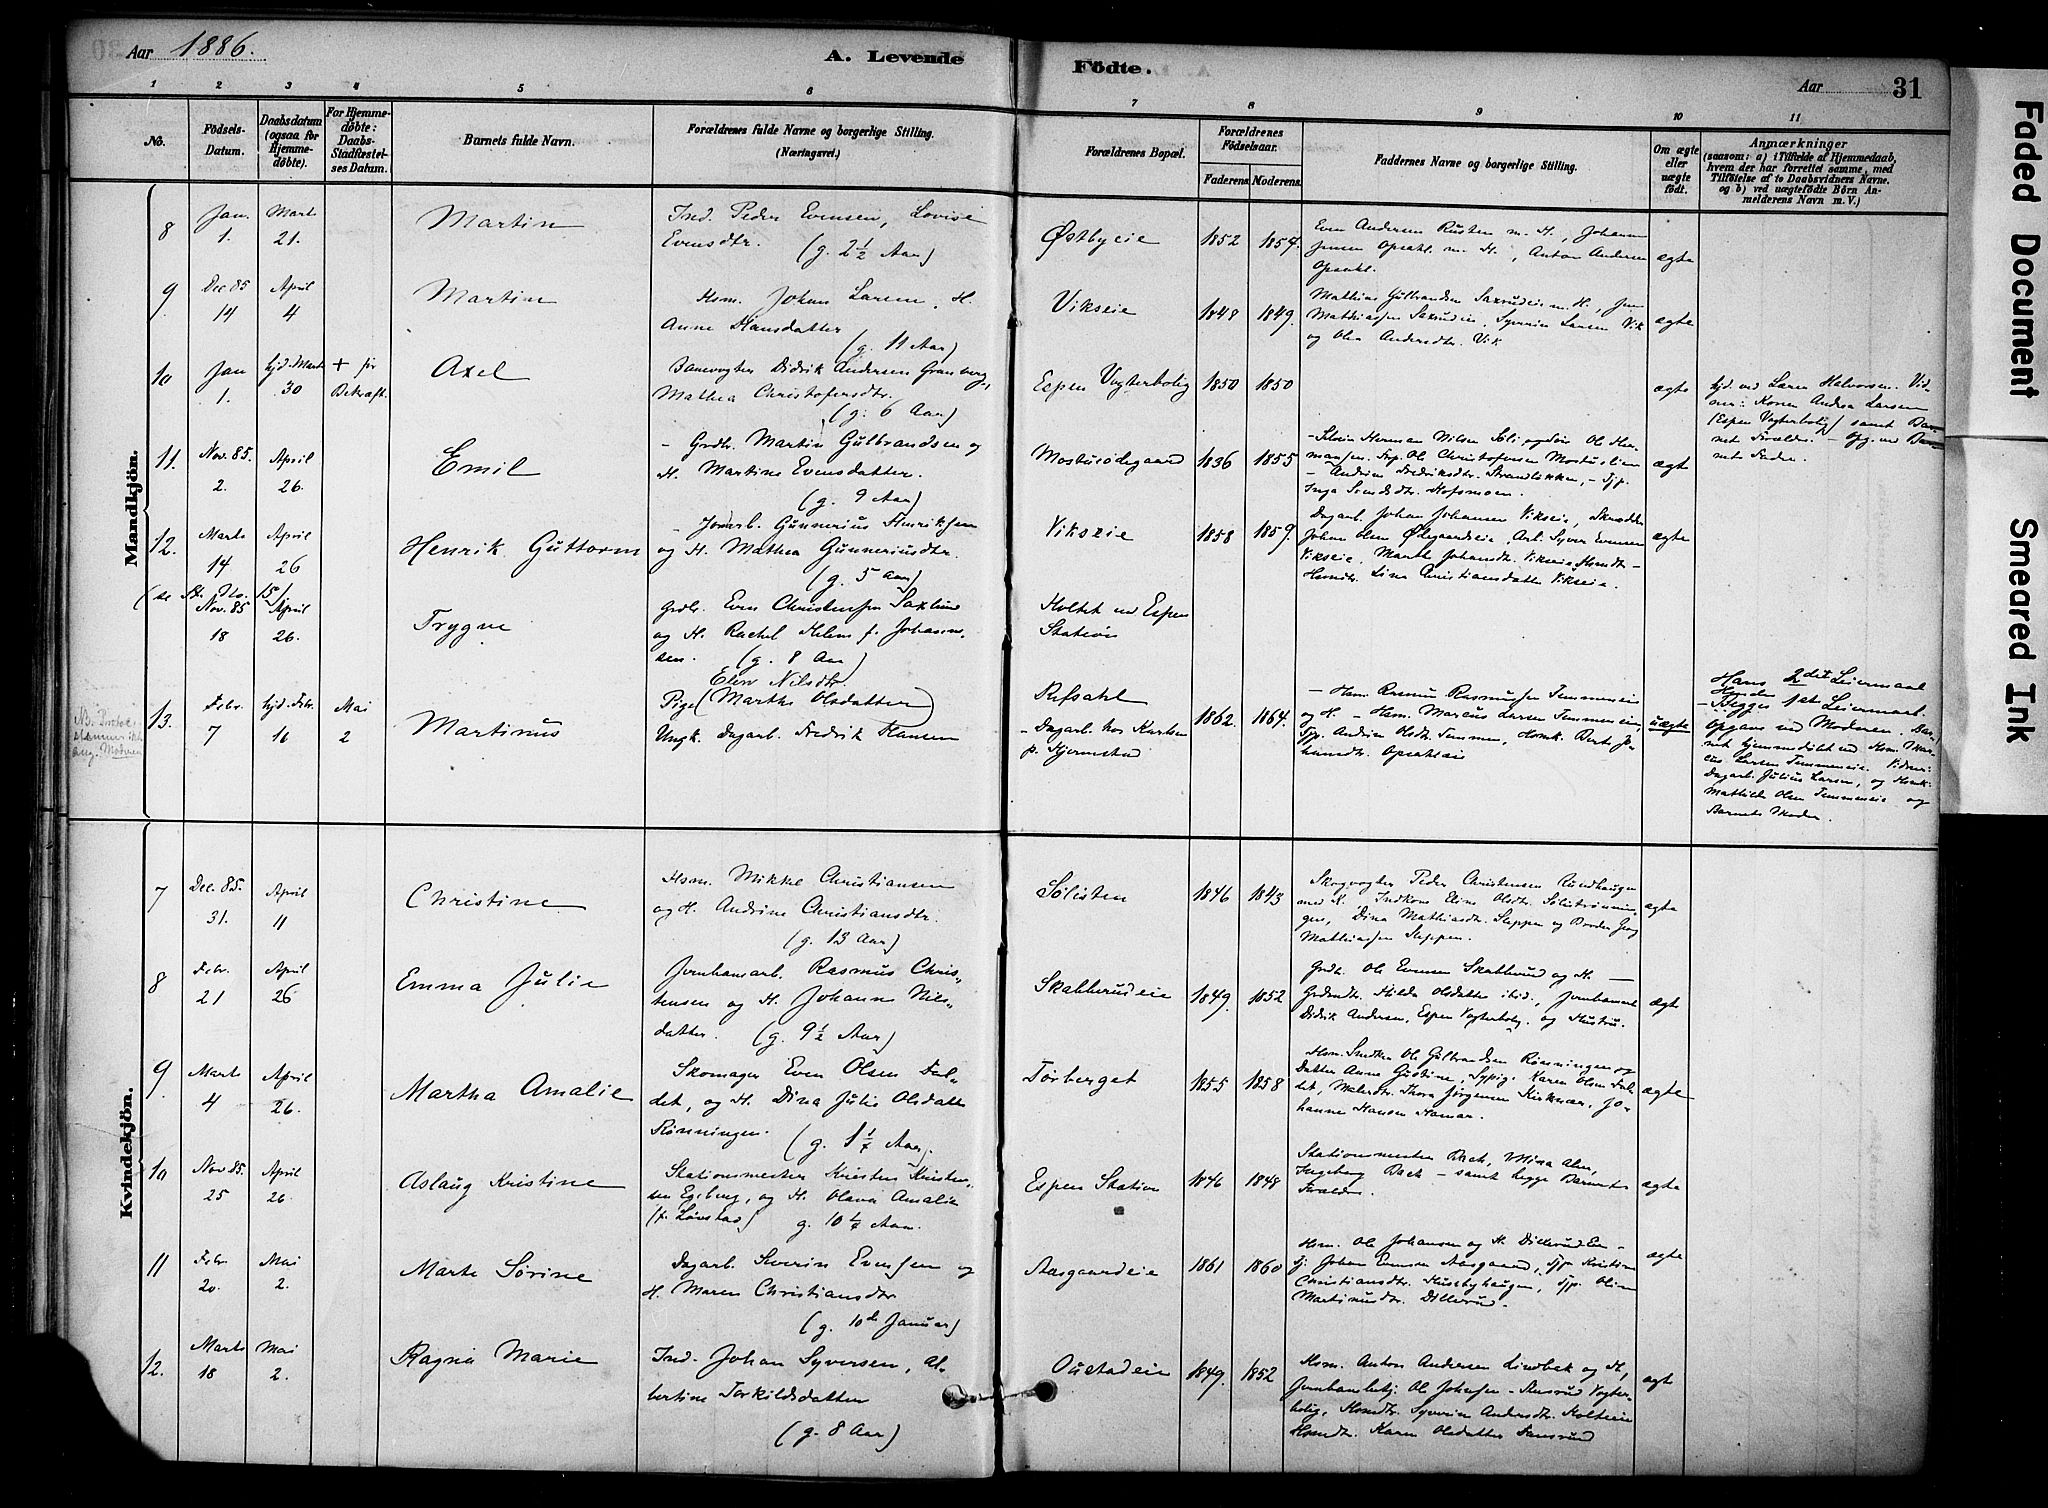 Aar 1886. A. Levende Födte. Aar 31
1 2 3 4 5 6 7 8 9 10 11
No. Födsels-Datum. Daabsdatum (ogsaa for Hjemmedøbte). For Hjemmedøbte: Daabs-Stadfæstelses Datum. Barnets fulde Navn. Forældrenes fulde Navne og borgerlige Stilling. (Næringsvei.) Forældrenes Bopæl. Forældrenes Födselsaar. Faderens Moderens. Faddernes Navne og borgerlige Stilling. Om ægte eller uægte födt. Anmærkninger (saasom: a) i Tilfælde af Hjemmedaab, hvem der har forrettet samme, med Tilføielse af to Daabsvidners Navne. og b) ved uægtefödte Börn Anmelderens Navn m. V.)
Mandkjön.
8 Jan. 1. Mart. 21. Martin
Ind. Peder Evensen, Lovise
Evensdtr. (g. 2 1/2 Aar)
Østbyeie 1852 1854.
Even Andersen Rusten m. H., Johann
Jensen Opsahl m. H., Anton Andersen
Opsahl.
ægte
9 Dec 85 14 April 4 Martin
Hsm. Johan Larsen, H.
Anne Hansdatter
(g. 11 Aar)
Vikseie 1848 1849.
Mathias Gulbrandsen Saxrudeie m. H., Jens
Mathiassen Saxrudeie, Syverin Larsen Vik
og Olea Andersdtr. Vik
ægte
10 Jan 1. hjd. Marts 30 + før Bekræft. Axel
Banevogter Didrik Andersen Granberg,
Mathea Christofersdtr.
(g. 6 Aar)
Espen Vogterbolig 1850 1850
ægte
hjd. ved Laren Halvorsen. Vid-
ner: Konen Andrea Larsen
(Espen Vogterbolig) samt Bar-
nets Forældre. - Opg. ved Bar-
nets Fader.
11. Nov. 85. 2. April 26. Emil
- Grdbr. Martin Gulbrandsen og
H. Martine Evensdatter.
(g. 9 Aar)
Mostueødegaard 1836 1855
ægte
12. Marts 14 April 26 Henrik Guttorm
- Jernb. Gunnerius Henriksen
og H. Mathea Gunneriusdtr.
(g. 5 Aar)
Vikseie 1858 1859.
Dagarb. Johan Johansen Vikseie, Skrædder
Johan Olsen Ødegaardseie, Arb. Syver Evensen
Vikseie, Marthe Johansdtr. Vikseie Hsmdtr -
Hsmdtr. Lina Christiansdatter Vikseie.
ægte
Nov. 85 18 April 26. Trygve
Grdbr. Even Christensen Saxlund
og H. Rachel Helene f. Johann-
sen. (g. 8 Aar)
Holtet ved Espen
Station
13. Febr. 7 hjd. Febr. 16 Mai 2 Martinus
Elen Nilsdtr.
Pige (Marthe Olsdatter)
Ungk. Dagarb. Fredrik Hansen
Refsahl
- Dagarb. hos Karlsen
p. Hjermstad
1862. 1864.
- Hsm. Rasmus Rasmussen Temmeneie
og H. - Hsm. Marcus Larsen Temmeneie,
Tjp. Andrine Olsdtr. Temmen, Hsmk. Berte Jo-
hansdtr. Opsahleie
uægte
Hans 2det Leiermaal
Hendes 1ste Leiermaal.
Opgave ved Moderen. Bar-
net hjemmedøbt ved Hsm. Mar-
cus Larsen Temmeneie. Vidner:
Dagarb. Julius Larsen, og Hsmk.
Mathilde Olsen Temmeneie og
Barnets Moder.
Kvindekjön.
7 Dec. 85. 31. April 11 Christine
Hsm. Mikkel Christiansen
og H. Andrine Christiansdtr.
(g. 13 Aar)
Sølisten 1846 1843
Skogvogter Peder Christensen Rundhaugen
med K. Indkone Eline Olsdtr. Sølistrønnin-
gen, Dina Mathiasdtr. Sleppen og Broder Jens
Mathiassen Sleppen.
ægte
8 Febr. 21 April 26 Emma Julie
Jernbanearb. Rasmus Chris-
tensen og H. Johanne Niels-
datter. (g. 9 1/2 Aar)
Skabberudeie 1849. 1852
Grdbr. Ole Evensen Skabberud og H. -
Grdmdtr. Hilda Olsdatter ibid., Jernbanem.
Didrik Andersen, Espen Vogterbolig. og Hustru.
ægte
9. Marts 4 April 26. Martha Amalie
Skomager Even Olsen Dal-
det, og H. Dina Julie Olsdatter
Rønningen. (g. 1 1/4 Aar).
Torberget 1855 1858
ægte
10 Nov 85. 25 April 26. Aslaug Kristine
Stationsmester Kristen Kristen-
sen Egeberg, og H. Olava Amalie
(f. Løvstad) g. 10 1/4 Aar.
Espen Station 1846 1848
Stationsmester Bæk, Mina Alm,
Ingeborg Bæk - samt begge Barnets
Forældre.
ægte
11 Febr. 20. Mai 2. Marte Sørine
Dagarb. Severin Evensen og
H. Maren Christiansdtr.
(g. 10de Januar)
Aasgaardeie 1861 1860
Hsm. Ole Johansen og H. Dillerud Ei-
e, Johan Evensen Aasgaard, Tjp Kristine
Christiansdtr. Husebyhaugen, Tjp. Oline
Martinusdtr. Dillerud.
ægte
12. Marts 18 Mai 2. Ragna Marie
Ind. Johan Syversen, Al-
bertine Torkildsdatter
(g. 8 Aar)
Oustadeie 1849. 1852
Hsm. Anton Andersen Lindbæk og H,
Jernbanebetj. Ole Johnsen - Aasrud Vogter-
bolig, Hsmdtr. Syverine Andersdtr. Holteeie
Hsmdtr. Karen Olsdatter Jamsrud
ægte
Faded Document Smeared Ink